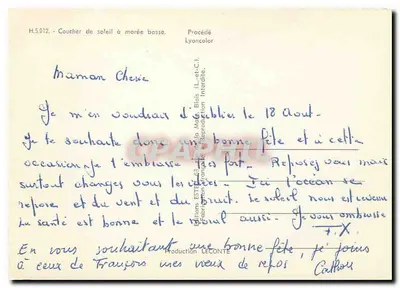 H.S.512. - Coucher de soleil à marée basse.
Procédé
Lyoncolor
Maman Cherie
Je m'en voudrais d'oublier le 18 Aout.
Je te souhaite donc une bonne fête et à cette
occasion je t'embrasse très fort. Reposez vous mais
surtout changez vous les idées. Ici l'océan se
repose et du vent et du bruit. Le soleil nous est
La santé est bonne et le moral aussi. Je vous embrasse
F.X.
En vous souhaitant une bonne fête, je joins
à ceux de François mes vœux de repos
Production LECONTE
Reproduction Interdite.